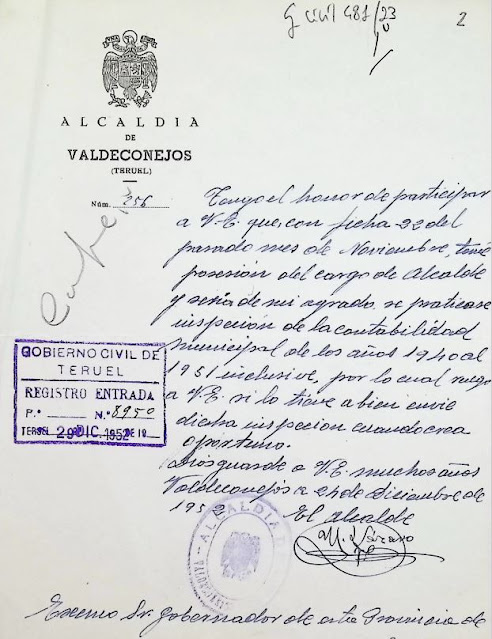 G civil 481/23
2
ALCALDIA
DE
VALDECONEJOS
(TERUEL)
Núm. 256
Tengo el honor de participar
a V.E. que con fecha 22 del
pasado mes de Noviembre, tomé
posesión del cargo de Alcalde
y sería de mi agrado se practicase
inspeción de la contabilidad
municipal de los años 1940 al
1951 inclusive, por lo cual ruego
a V.E. si lo tiene a bien envie
dicha inspeción cuando crea
oportuno.
Dios guarde a V.E. muchos años
Valdeconejos a 24 de diciembre de
1952
El Alcalde
M. Lázaro
GOBIERNO CIVIL DE
TERUEL
REGISTRO ENTRADA
P.º N.º 8950
TERUEL 29 DIC. 1952 DE 19
ALCALDIA
Excmo Sr. Gobernador de esta Provincia de